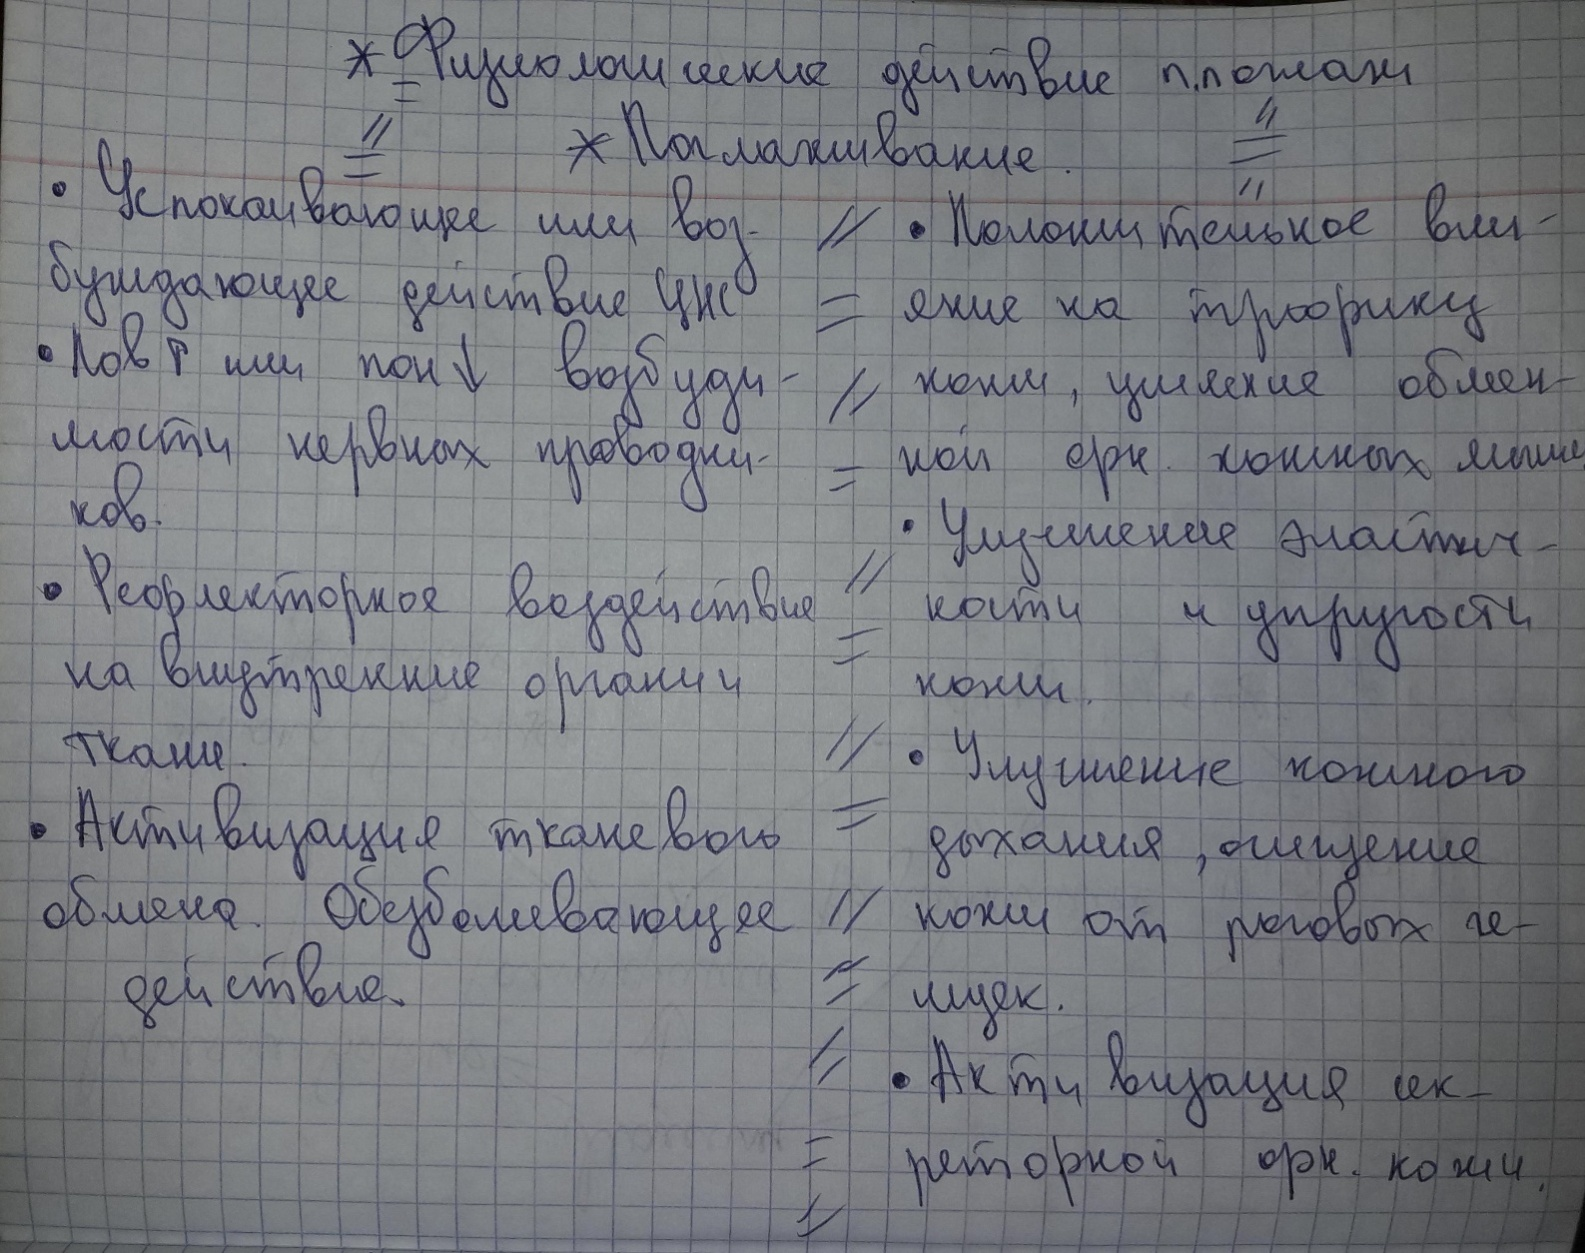 * Физиологические действие
* Поглаживание.
• Успокаивающее или воз-
буждающее действие ЦНС
• Пов↑ или пон↓ возбуди-
мости нервных проводни-
ков.
• Рефлекторное воздействие
на внутренние органы и
ткани.
• Активизация тканевого
обмена. Обезболивающее
действие.
• Положительное вли-
яние на трофику
кожи, усиление обмен-
ной фун. кожных мышц
• Улучшение эластич-
ности и упругости
кожи.
• Улучшение кожного
дыхания, очищение
кожи от роговых че-
шуек.
• Активизация сек-
реторной фун. кожи.